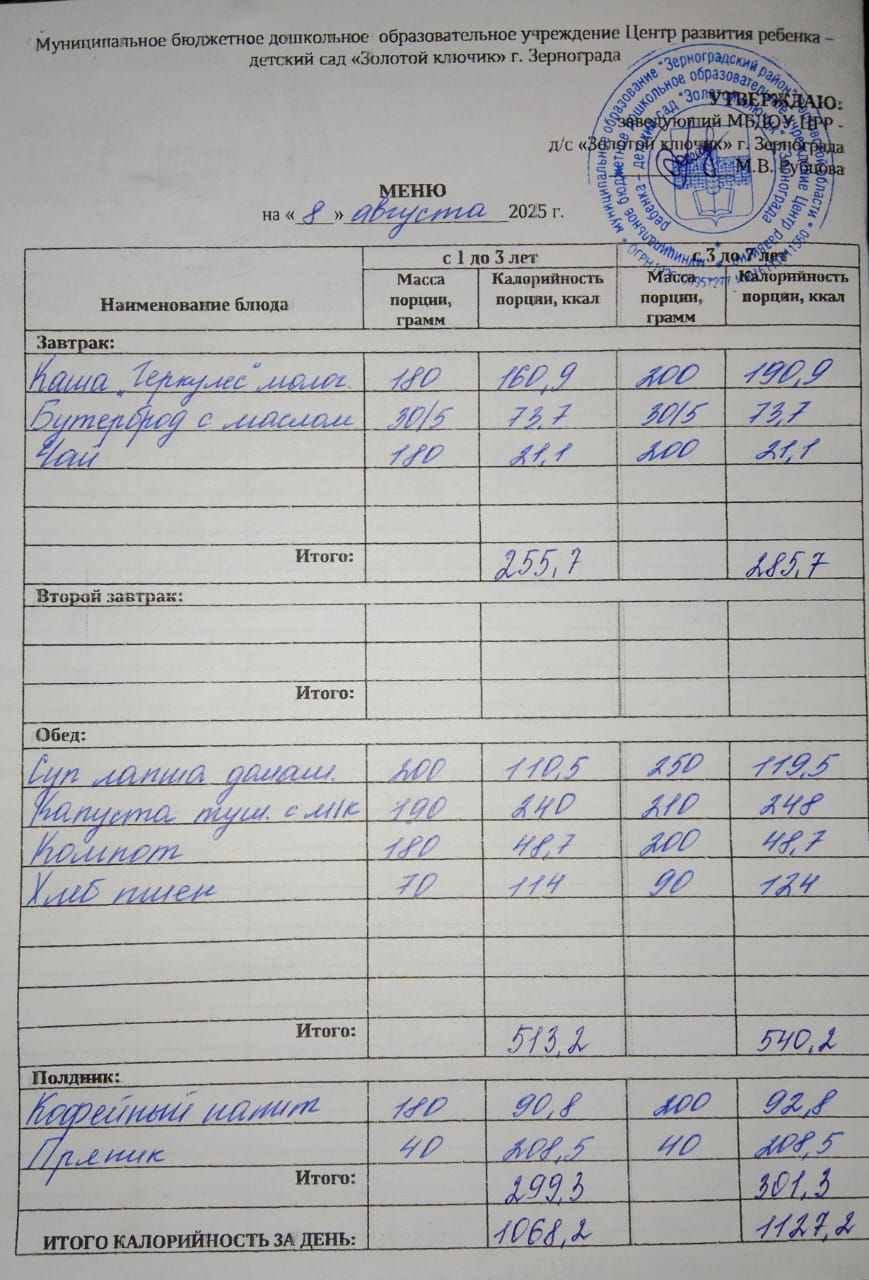 Муниципальное бюджетное дошкольное образовательное учреждение Центр развития ребенка –
детский сад «Золотой ключик» г. Зернограда
УТВЕРЖДАЮ:
заведующий МБДОУ ЦРР -
д/с «Золотой ключик» г. Зернограда
М.В. Рубцова
МЕНЮ
на « 8 » августа 2025 г.
Наименование блюда с 1 до 3 лет с 3 до 7 лет
Масса порции, грамм Калорийность порции, ккал Масса порции, грамм Калорийность порции, ккал
Завтрак:
Каша "Геркулес" молоч. 180 160,9 200 190,9
Бутерброд с маслом 30/5 73,7 30/5 73,7
Чай 180 21,1 200 21,1
Итого: 255,7 285,7
Второй завтрак:
Итого:
Обед:
Суп лапша домаш. 200 110,5 250 119,5
Капуста туш. с м/к 190 240 210 248
Компот 180 48,7 200 48,7
Хлеб пшен 70 114 90 124
Итого: 513,2 540,2
Полдник:
Кофейный напит 180 90,8 200 92,8
Пряник 40 208,5 40 208,5
Итого: 299,3 301,3
ИТОГО КАЛОРИЙНОСТЬ ЗА ДЕНЬ: 1068,2 1127,2